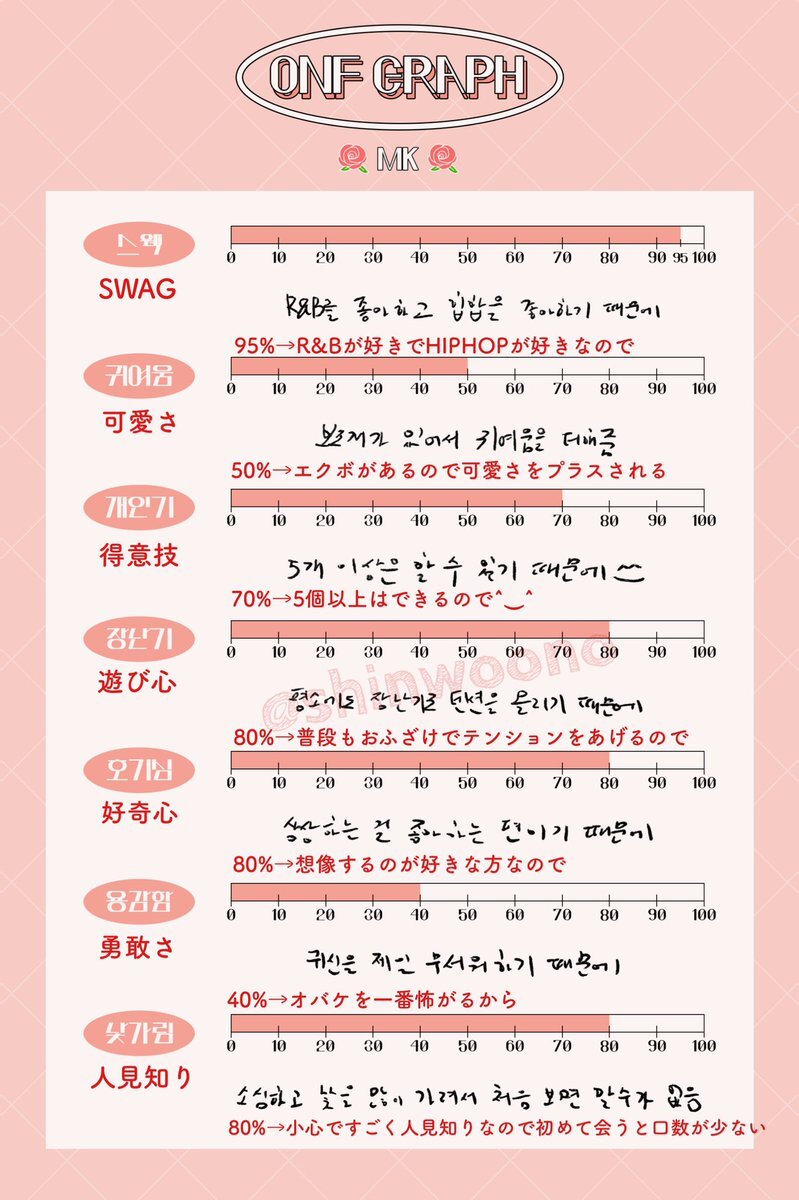 ONF GRAPH
MK
스웩
0 10 20 30 40 50 60 70 80 90 95 100
SWAG
R&B를 좋아하고 힙합을 좋아하기 때문에
95%→R&Bが好きでHIPHOPが好きなので
귀여움
0 10 20 30 40 50 60 70 80 90 100
可愛さ
보조개가 있어서 귀여움을 더해줌
50%→エクボがあるので可愛さをプラスされる
개인기
0 10 20 30 40 50 60 70 80 90 100
得意技
5개 이상은 할 수 있기 때문에^‿^
70%→5個以上はできるので^‿^
장난기
0 10 20 30 40 50 60 70 80 90 100
遊び心
@shinwoono
평소에도 장난기로 텐션을 올리기 때문에
80%→普段もおふざけでテンションをあげるので
호기심
0 10 20 30 40 50 60 70 80 90 100
好奇心
상상하는 걸 좋아하는 편이기 때문에
80%→想像するのが好きな方なので
용감함
0 10 20 30 40 50 60 70 80 90 100
勇敢さ
귀신을 제일 무서워하기 때문에
40%→オバケを一番怖がるから
낯가림
0 10 20 30 40 50 60 70 80 90 100
人見知り
소심하고 낯을 많이 가려서 처음 보면 말수가 없음
80%→小心ですごく人見知りなので初めて会うと口数が少ない